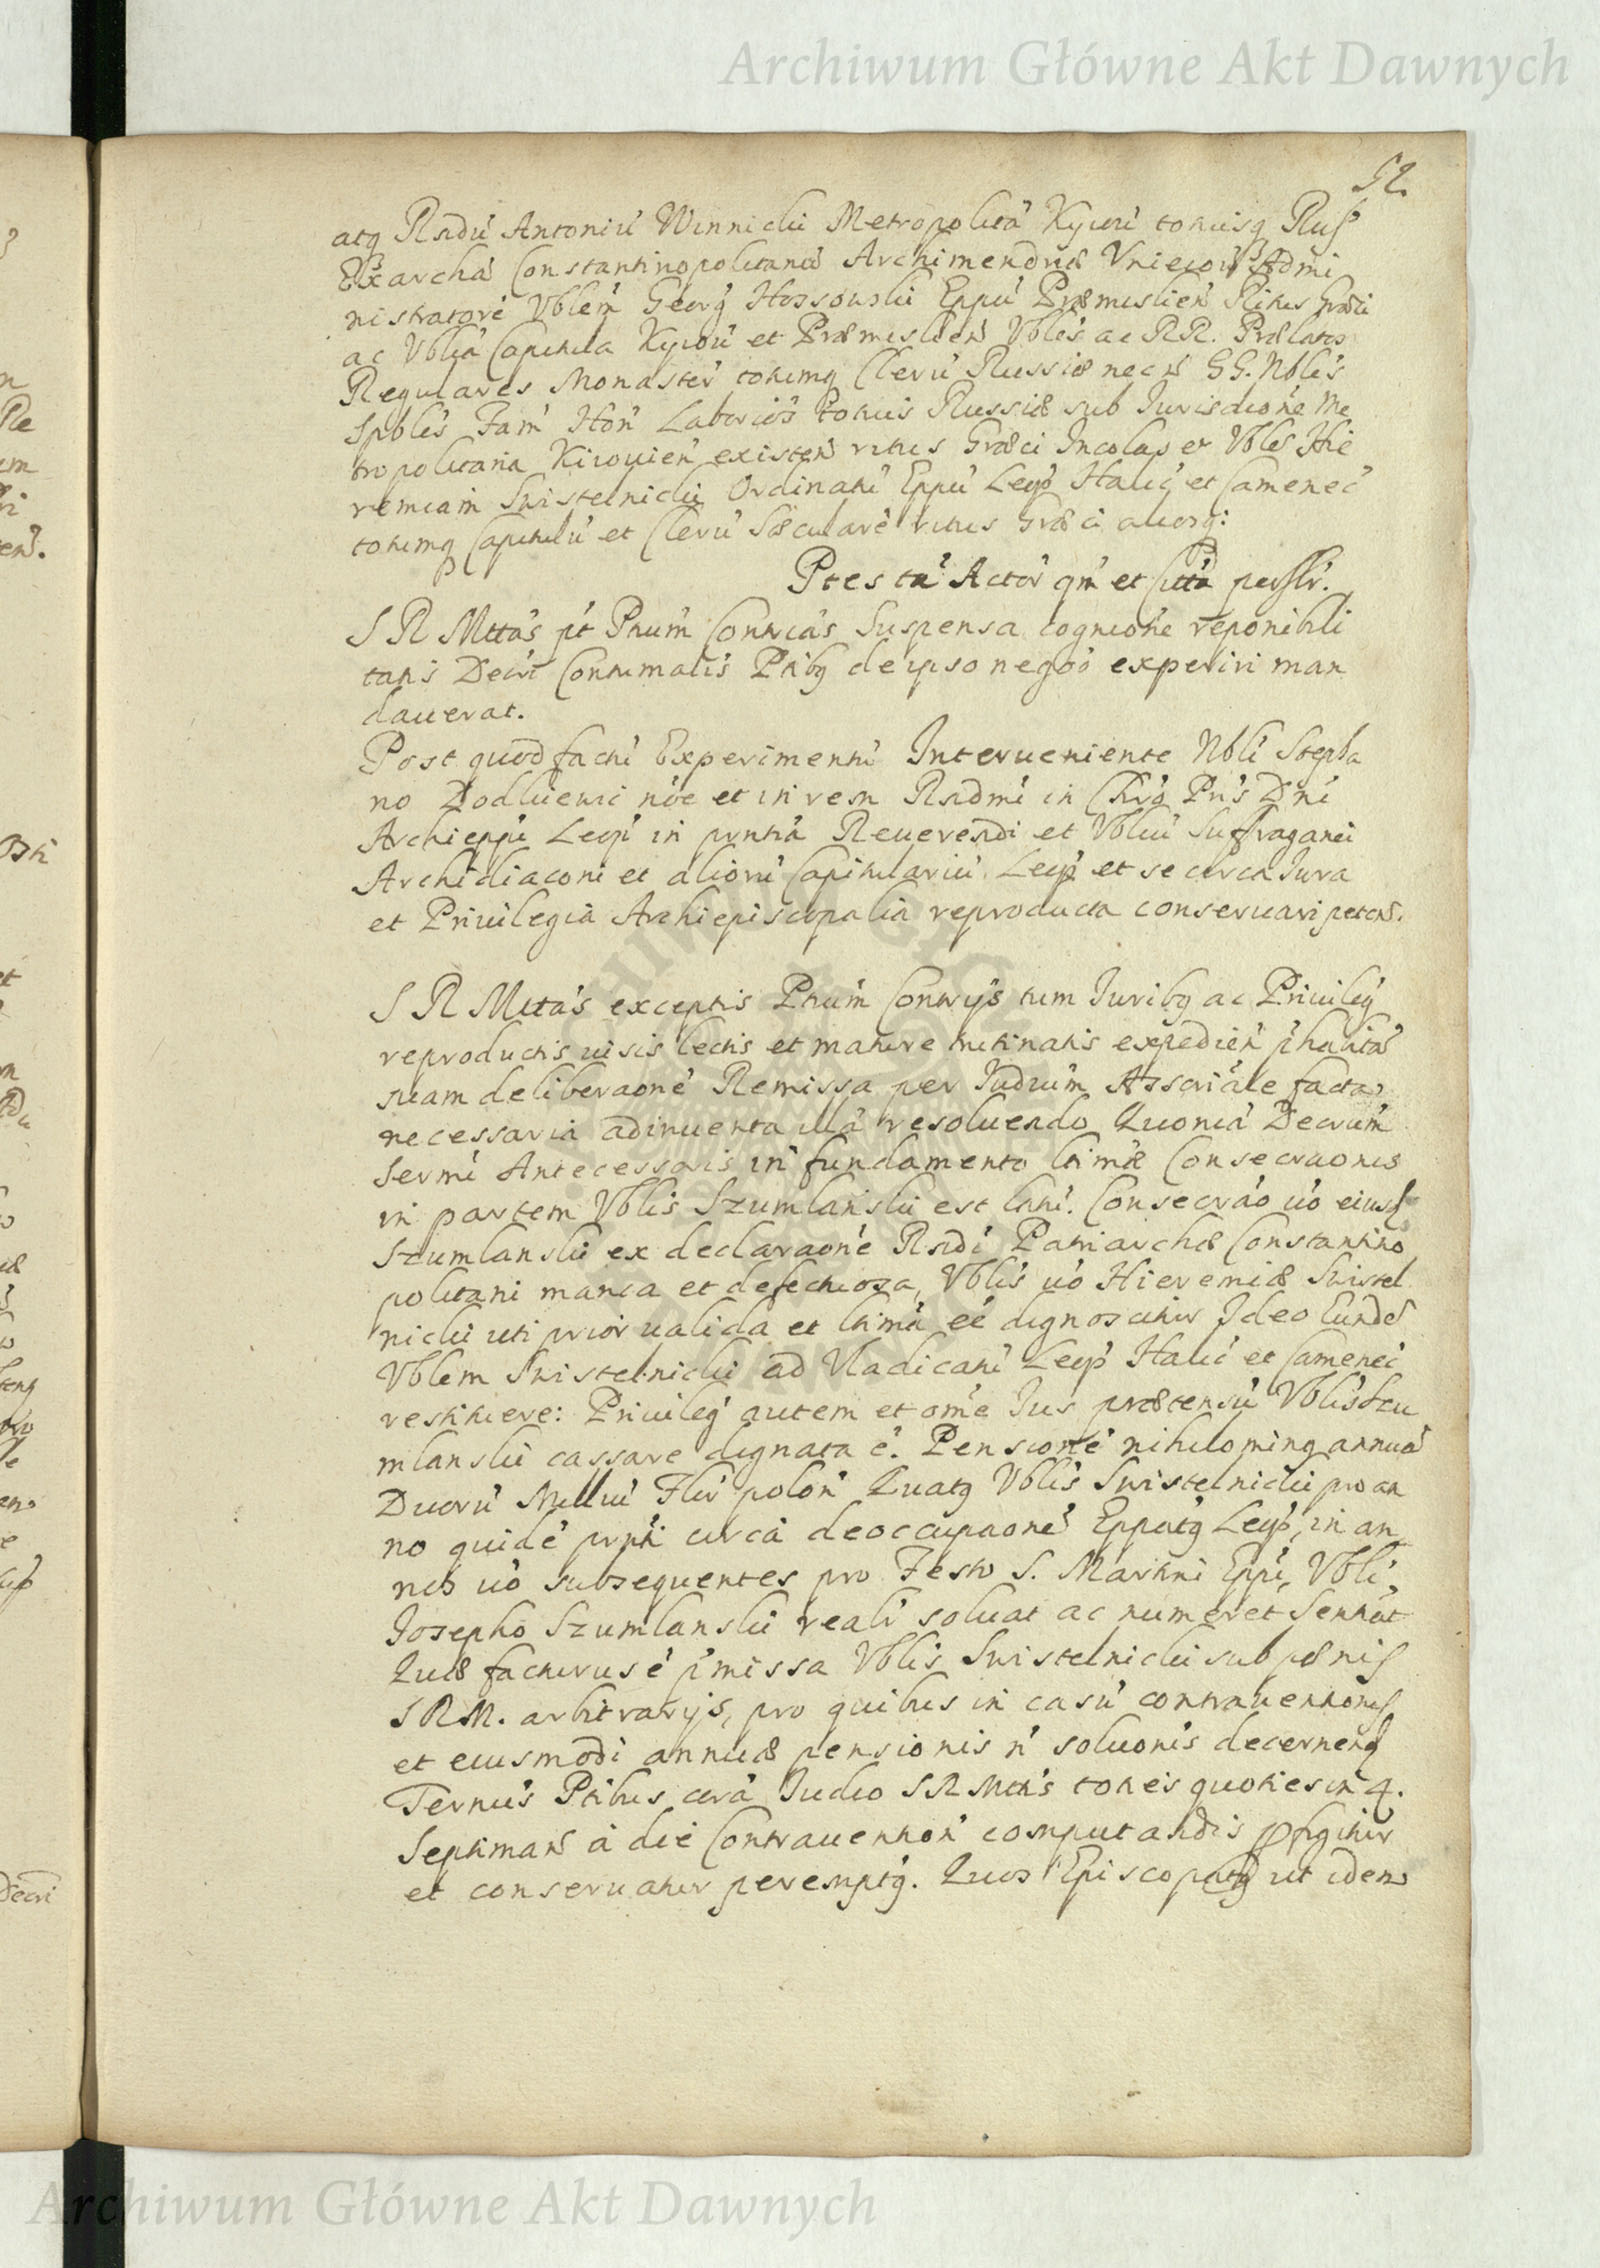 Archiwum Główne Akt Dawnych
52.
atq Rndu Antoniu Winnicki Metropolita Kyiou totiusq Russ
Exarcha Constantinopolitana Archimendria Vnieiou Admi
nistratore Vblem Georg Hossowski Eppu Præmislien Ritus Græci
ac Vblia Capitula Kyiou et Præmislien Vbles ac RR. Prælatos
Regulares Monaster totumq Cleru Russiæ necn GG. Nbles
Spbles Fam Hon Laborios totius Russiæ sub Jurisdione Me
tropolitana Kiiouien existen ritus Græci Incolas et Vbles Hie
remiam Swistelnicki Ordinatu Eppu Leop Halic et Camenec
totumq Capitulu et Cleru Sæculare ritus Græci aliosq:
Ptes ta Actor qm et Citta perssr.
S R Mttas pt Ptium Contrias Suspensa cognione reponibili
tatis Decrt Contumatis Ptibq de ipso negoo experiri man
dauerat.
Post quod facti Experimenti Interueniente Nbli Stepha
no Dodkiewic noe et in rem Rndmi in Chro Pris Dni
Archieppi Leop in pnntia Reuerendi et Vbliu Suffraganei
Archidiaconi et alioru Capitulariu Leop et se circa Jura
et Priuilegia Archiepiscopalia reproducta conseruari peten.
S R Mttas exceptis Ptium Contrijs tum Juribq ac Priuileg
reproductis uisis lectis et mature trutinatis expedien p hauita
suam deliberaone Remissa per Judium Assoriale facta
necessaria adinuenta illa resoluendo Quonia Decrum
Sermi Antecessoris in fundamento ltimæ Consecraonis
in partem Vblis Szumlanski est lati. Consecrao uo eiusd
Szumlanski ex declaraone Rndi Patriarchæ Constantino
politani manca et defectuosa, Vblis uo Hieremiæ Swistel
nicki uti prior ualida et ltima ee dignoscitur Ideo Eunde
Vblem Swistelnicki ad Vladicatu Leop Halic et Camenec
restituere: Priuileg autem et ome Jus prætensu Vblis Szu
mlanski cassare dignata e. Pensione nihilominq annua
Ducru Milliu Flor polon Quatq Vblis Swistelnicki pro an
no quide prnti circa deoccupaone Eppatq Leop, in an
nos uo subsequentes pro Festo S. Martini Eppi, Vbli
Josepho Szumlanski reali soluat ac numeret Sennat
Quæ facturus e pmissa Vblis Swistelnicki sub pænis
S R M. arbitrarijs, pro quibus in casu contrauentionis
et eiusmodi annuæ pensionis n soluonis decernend
Ternus Ptibus cora Judio S R Mttis toties quoties in 4.
Septiman a die Contrauention computandis pfigitur
et conseruatur peremptq. Quos Episcopatq ut idem
Archiwum Główne Akt Dawnych